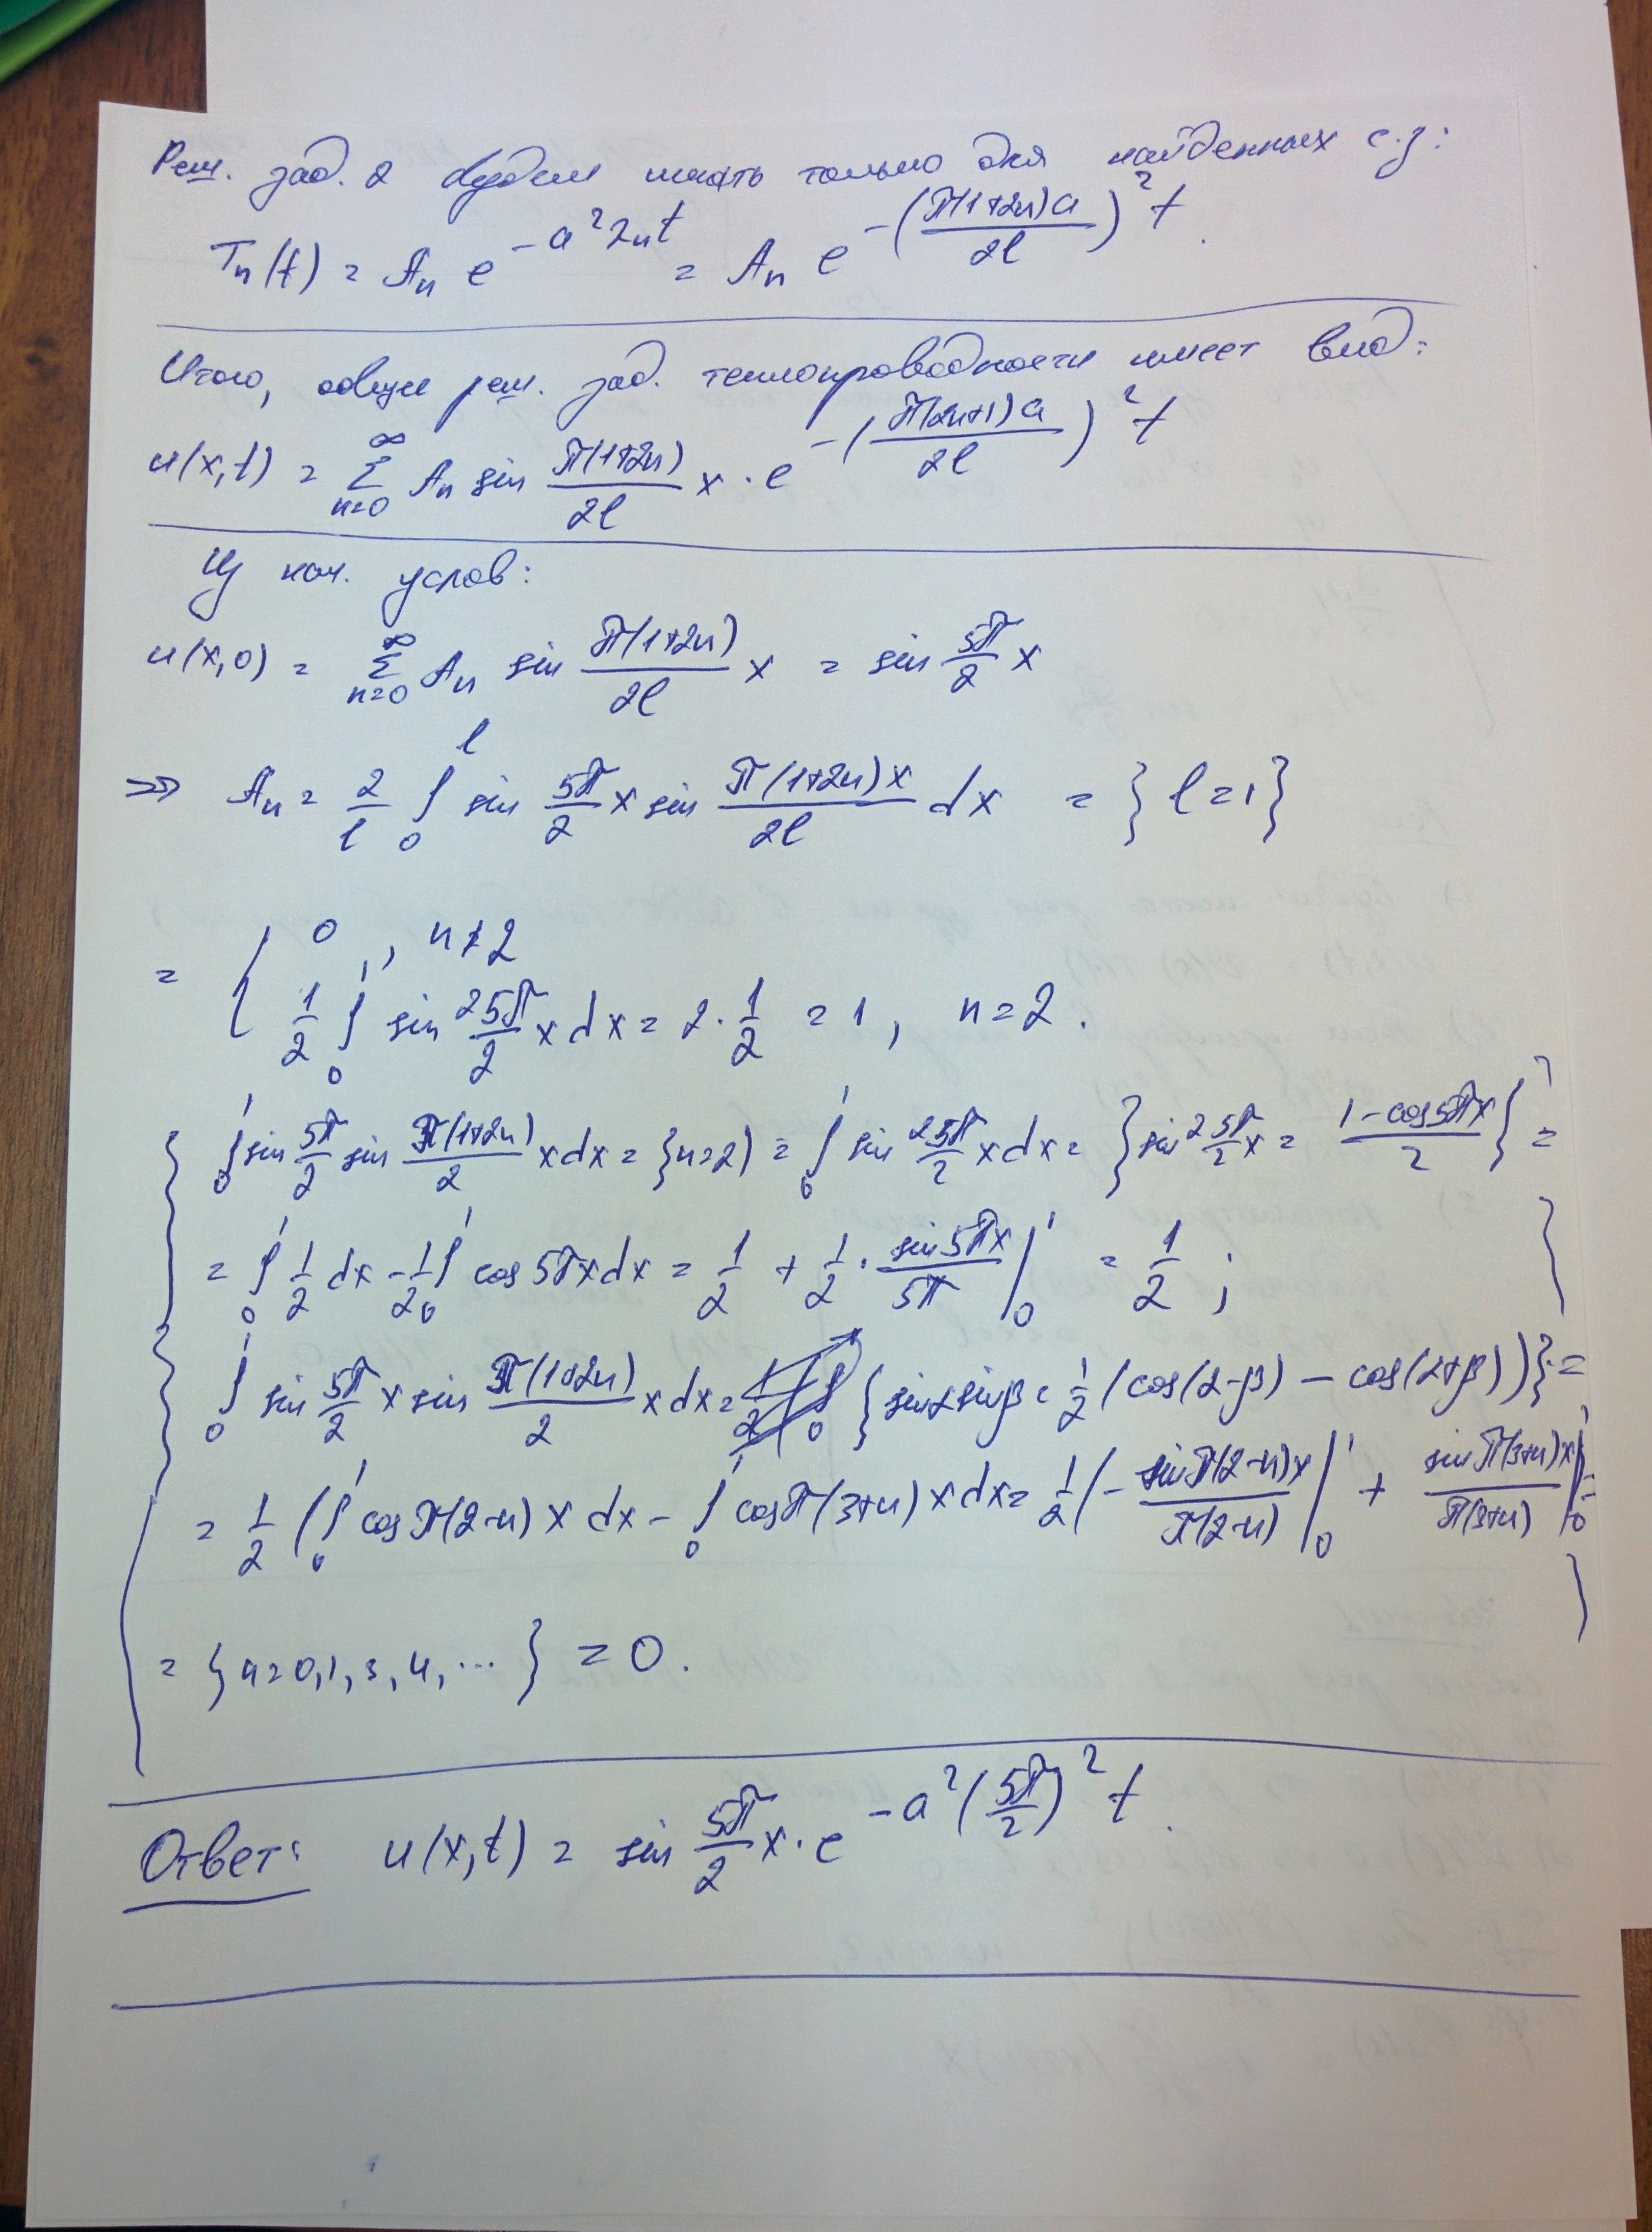 Реш. зад. 2 будем искать только для найденных с.з:
Tₙ(t) = Aₙ e^{-a²λₙt} = Aₙ e^{-(π(1+2n)a/2l)²t}.
Итого, общее реш. зад. теплопроводности имеет вид:
u(x,t) = ∑_{n=0}^{∞} Aₙ sin π(1+2n)/2l x · e^{-(π(2n+1)a/2l)²t}
Из нач. услов:
u(x,0) = ∑_{n=0}^{∞} Aₙ sin π(1+2n)/2l x = sin 5π/2 x
=> Aₙ = 2/l ∫₀^l sin 5π/2 x sin π(1+2n)x/2l dx = {l=1}
= { 0, n≠2
1/2 ∫₀¹ sin² 5π/2 x dx = 2·1/2 = 1, n=2.
{ ∫₀¹ sin 5π/2 sin π(1+2n)/2 x dx = {n=2} = ∫₀¹ sin² 5π/2 x dx = {sin² 5π/2 x = (1-cos5πx)/2} =
= ∫₀¹ 1/2 dx - 1/2 ∫₀¹ cos 5πx dx = 1/2 + 1/2 · sin5πx/5π |₀¹ = 1/2 ; }
{ ∫₀¹ sin 5π/2 x sin π(1+2n)/2 x dx = {sinα sinβ = 1/2 (cos(α-β) - cos(α+β))} =
= 1/2 (∫₀¹ cos π(2-n) x dx - ∫₀¹ cos π(3+n) x dx = 1/2 (- sin π(2-n)x/π(2-n) |₀¹ + sin π(3+n)x/π(3+n) |₀¹ =
= {n=0,1,3,4,...} = 0. }
Ответ: u(x,t) = sin 5π/2 x · e^{-a²(5π/2)²t}.